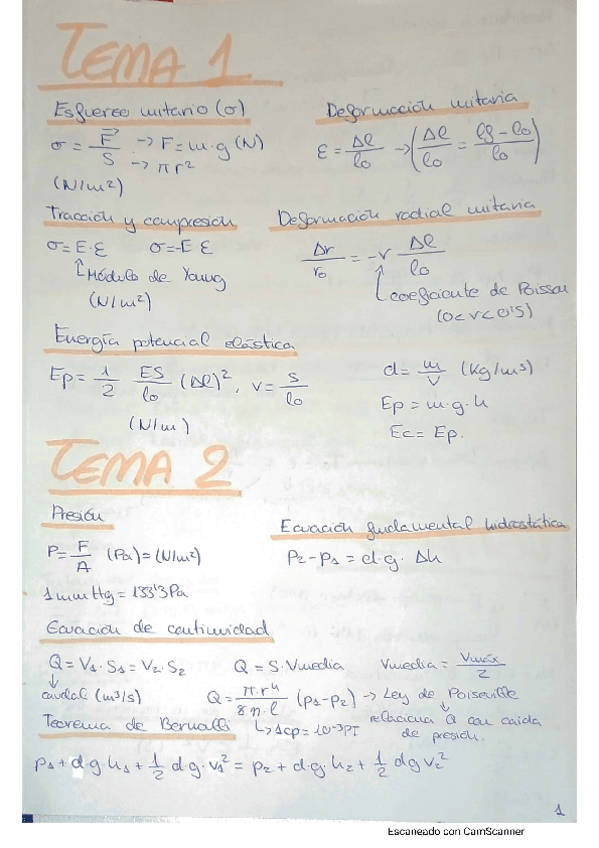 TEMA 1
Esfuerzo unitario (σ)
σ = F/S → F = m·g (N)
→ πr²
(N/m²)
Deformación unitaria
ε = Δl/l₀ → (Δl/l₀ = (lf - l₀)/l₀)
Tracción y compresión
σ = E·ε σ = -E ε
Módulo de Young
(N/m²)
Deformación radial unitaria
Δr/r₀ = -ν Δl/l₀
coeficiente de Poisson
(0<ν<0'5)
Energía potencial elástica
Ep = 1/2 ES/l₀ (Δl)², v = s/l₀
(N/m)
d = m/V (kg/m³)
Ep = m·g·h
Ec = Ep.
TEMA 2
Presión
P = F/A (Pa) = (N/m²)
1 mm Hg = 133'3 Pa
Ecuación fundamental hidrostática
P₂ - P₁ = d·g· Δh
Ecuación de continuidad
Q = V₁·S₁ = V₂·S₂ Q = S·Vmedia Vmedia = Vmáx/2
caudal (m³/s) Q = π·r⁴/8η·l (p₁-p₂) → Ley de Poiseuille
relaciona Q con caída
de presión.
↳ 1cp = 10⁻³ PI
Teorema de Bernoulli
p₁ + d·g·h₁ + 1/2 d·g·v₁² = p₂ + d·g·h₂ + 1/2 dg v₂²
1
Escaneado con CamScanner